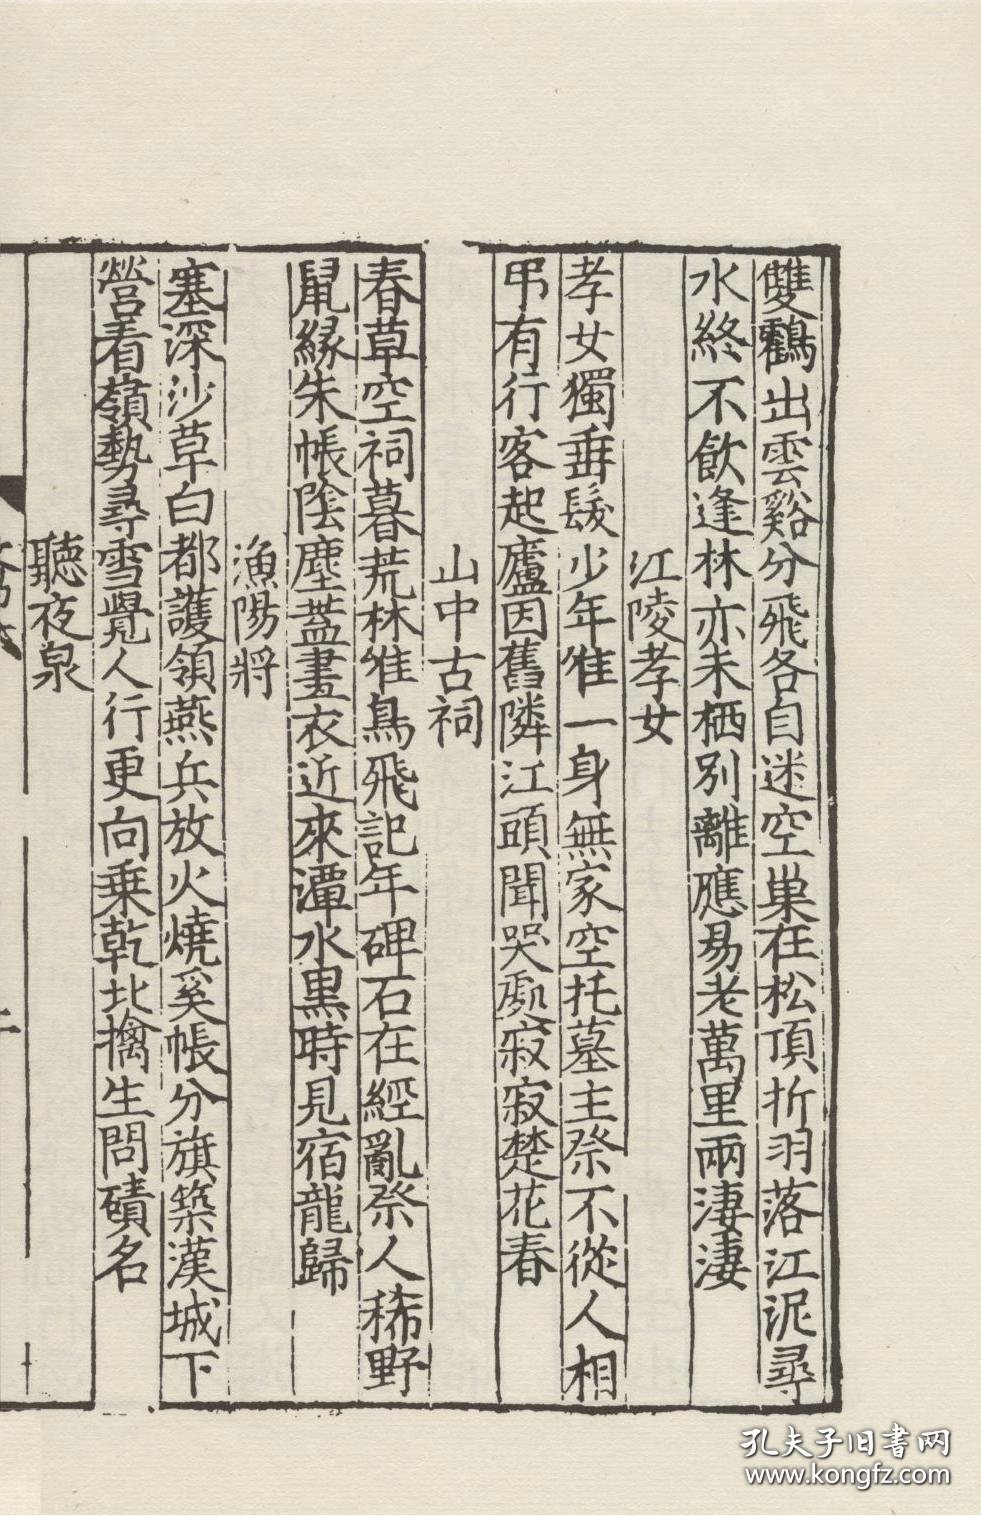 雙鸛出雲谿分飛各自迷空巢在松頂折羽落江泥尋
水終不飲逢林亦未栖別離應易老萬里兩淒淒
江陵孝女
孝女獨垂髮少年惟一身無家空托墓主祭不從人相
弔有行客起廬因舊隣江頭聞哭處寂寂楚花春
山中古祠
春草空祠暮荒林惟鳥飛記年碑石在經亂祭人稀野
鼠緣朱帳陰塵蓋畫衣近來潭水黑時見宿龍歸
漁陽將
塞深沙草白都護領燕兵放火燒奚帳分旗築漢城下
營看嶺勢尋雪覺人行更向乗乾北擒生問磧名
聽夜泉
孔夫子旧書网
www.kongfz.com